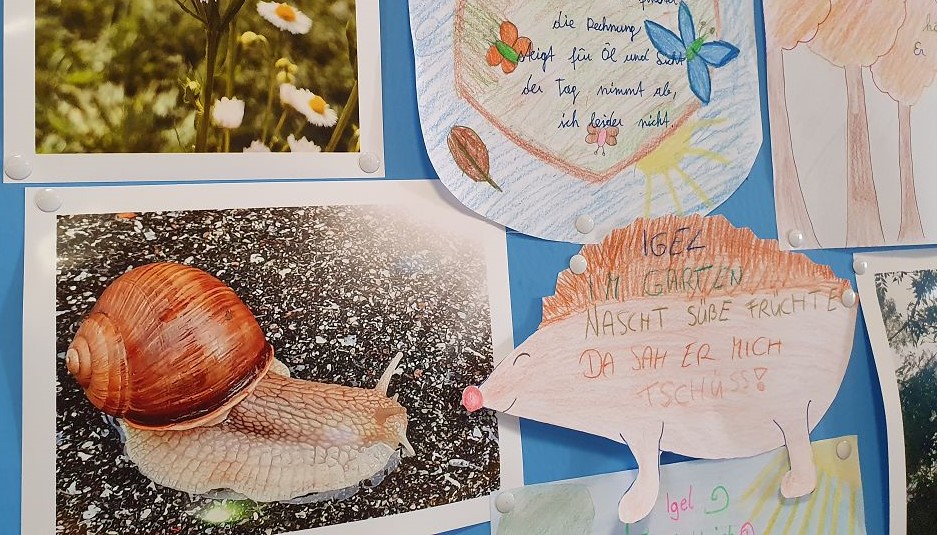 die Rechnung,
steigt für Öl und Licht
der Tag nimmt ab,
ich leider nicht.
IGEL
IM GARTEN
NASCHT SÜßE FRÜCHTE
DA SAH ER MICH
TSCHÜSS!
Igel